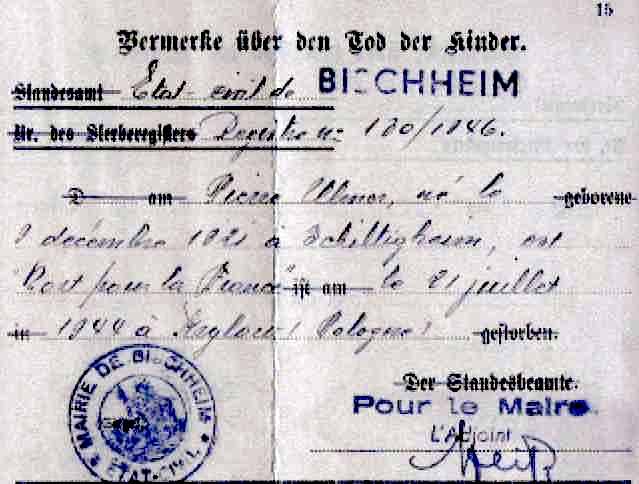 15
Vermerke über den Tod der Kinder.
Standesamt Etat-civil de BISCHHEIM
Nr. des Sterberegisters Registre no 130/1946.
D am Pierre Ulmer, né le geborene
9 décembre 1921 à Schiltigheim, est
"Mort pour la France" ist am le 21 juillet
in 1944 à (Pologne) gestorben.
Der Standesbeamte.
Pour le Maire
L'Adjoint
MAIRIE DE BISCHHEIM
ETAT-CIVIL